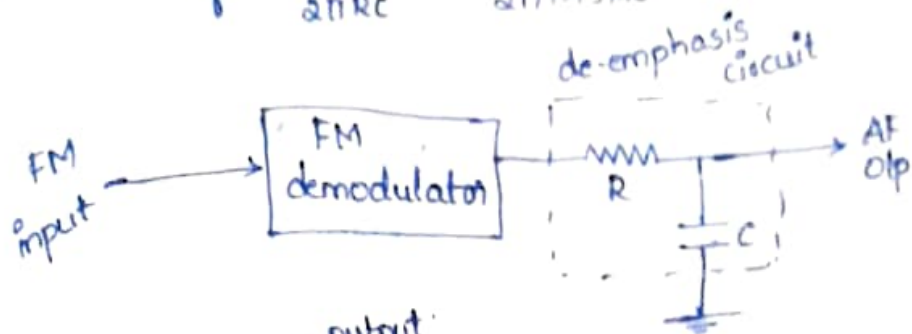 2πRC
de-emphasis
circuit
FM
input
FM
demodulator
R
C
AF
O/p
output